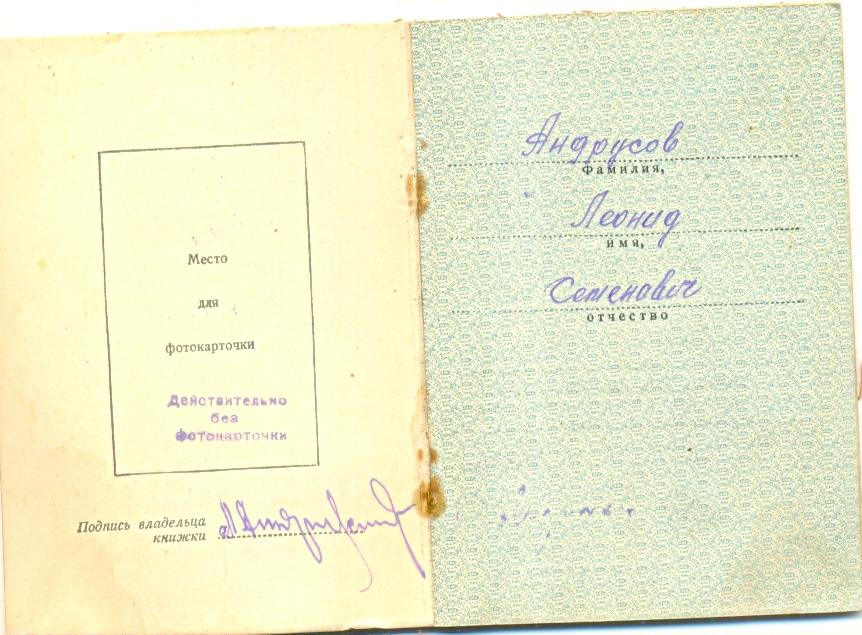 Место
для
фотокарточки
Действительно
без
фотокарточки
Подпись владельца
книжки
Андрусов
Фамилия,
Леонид
имя,
Семенович
отчество